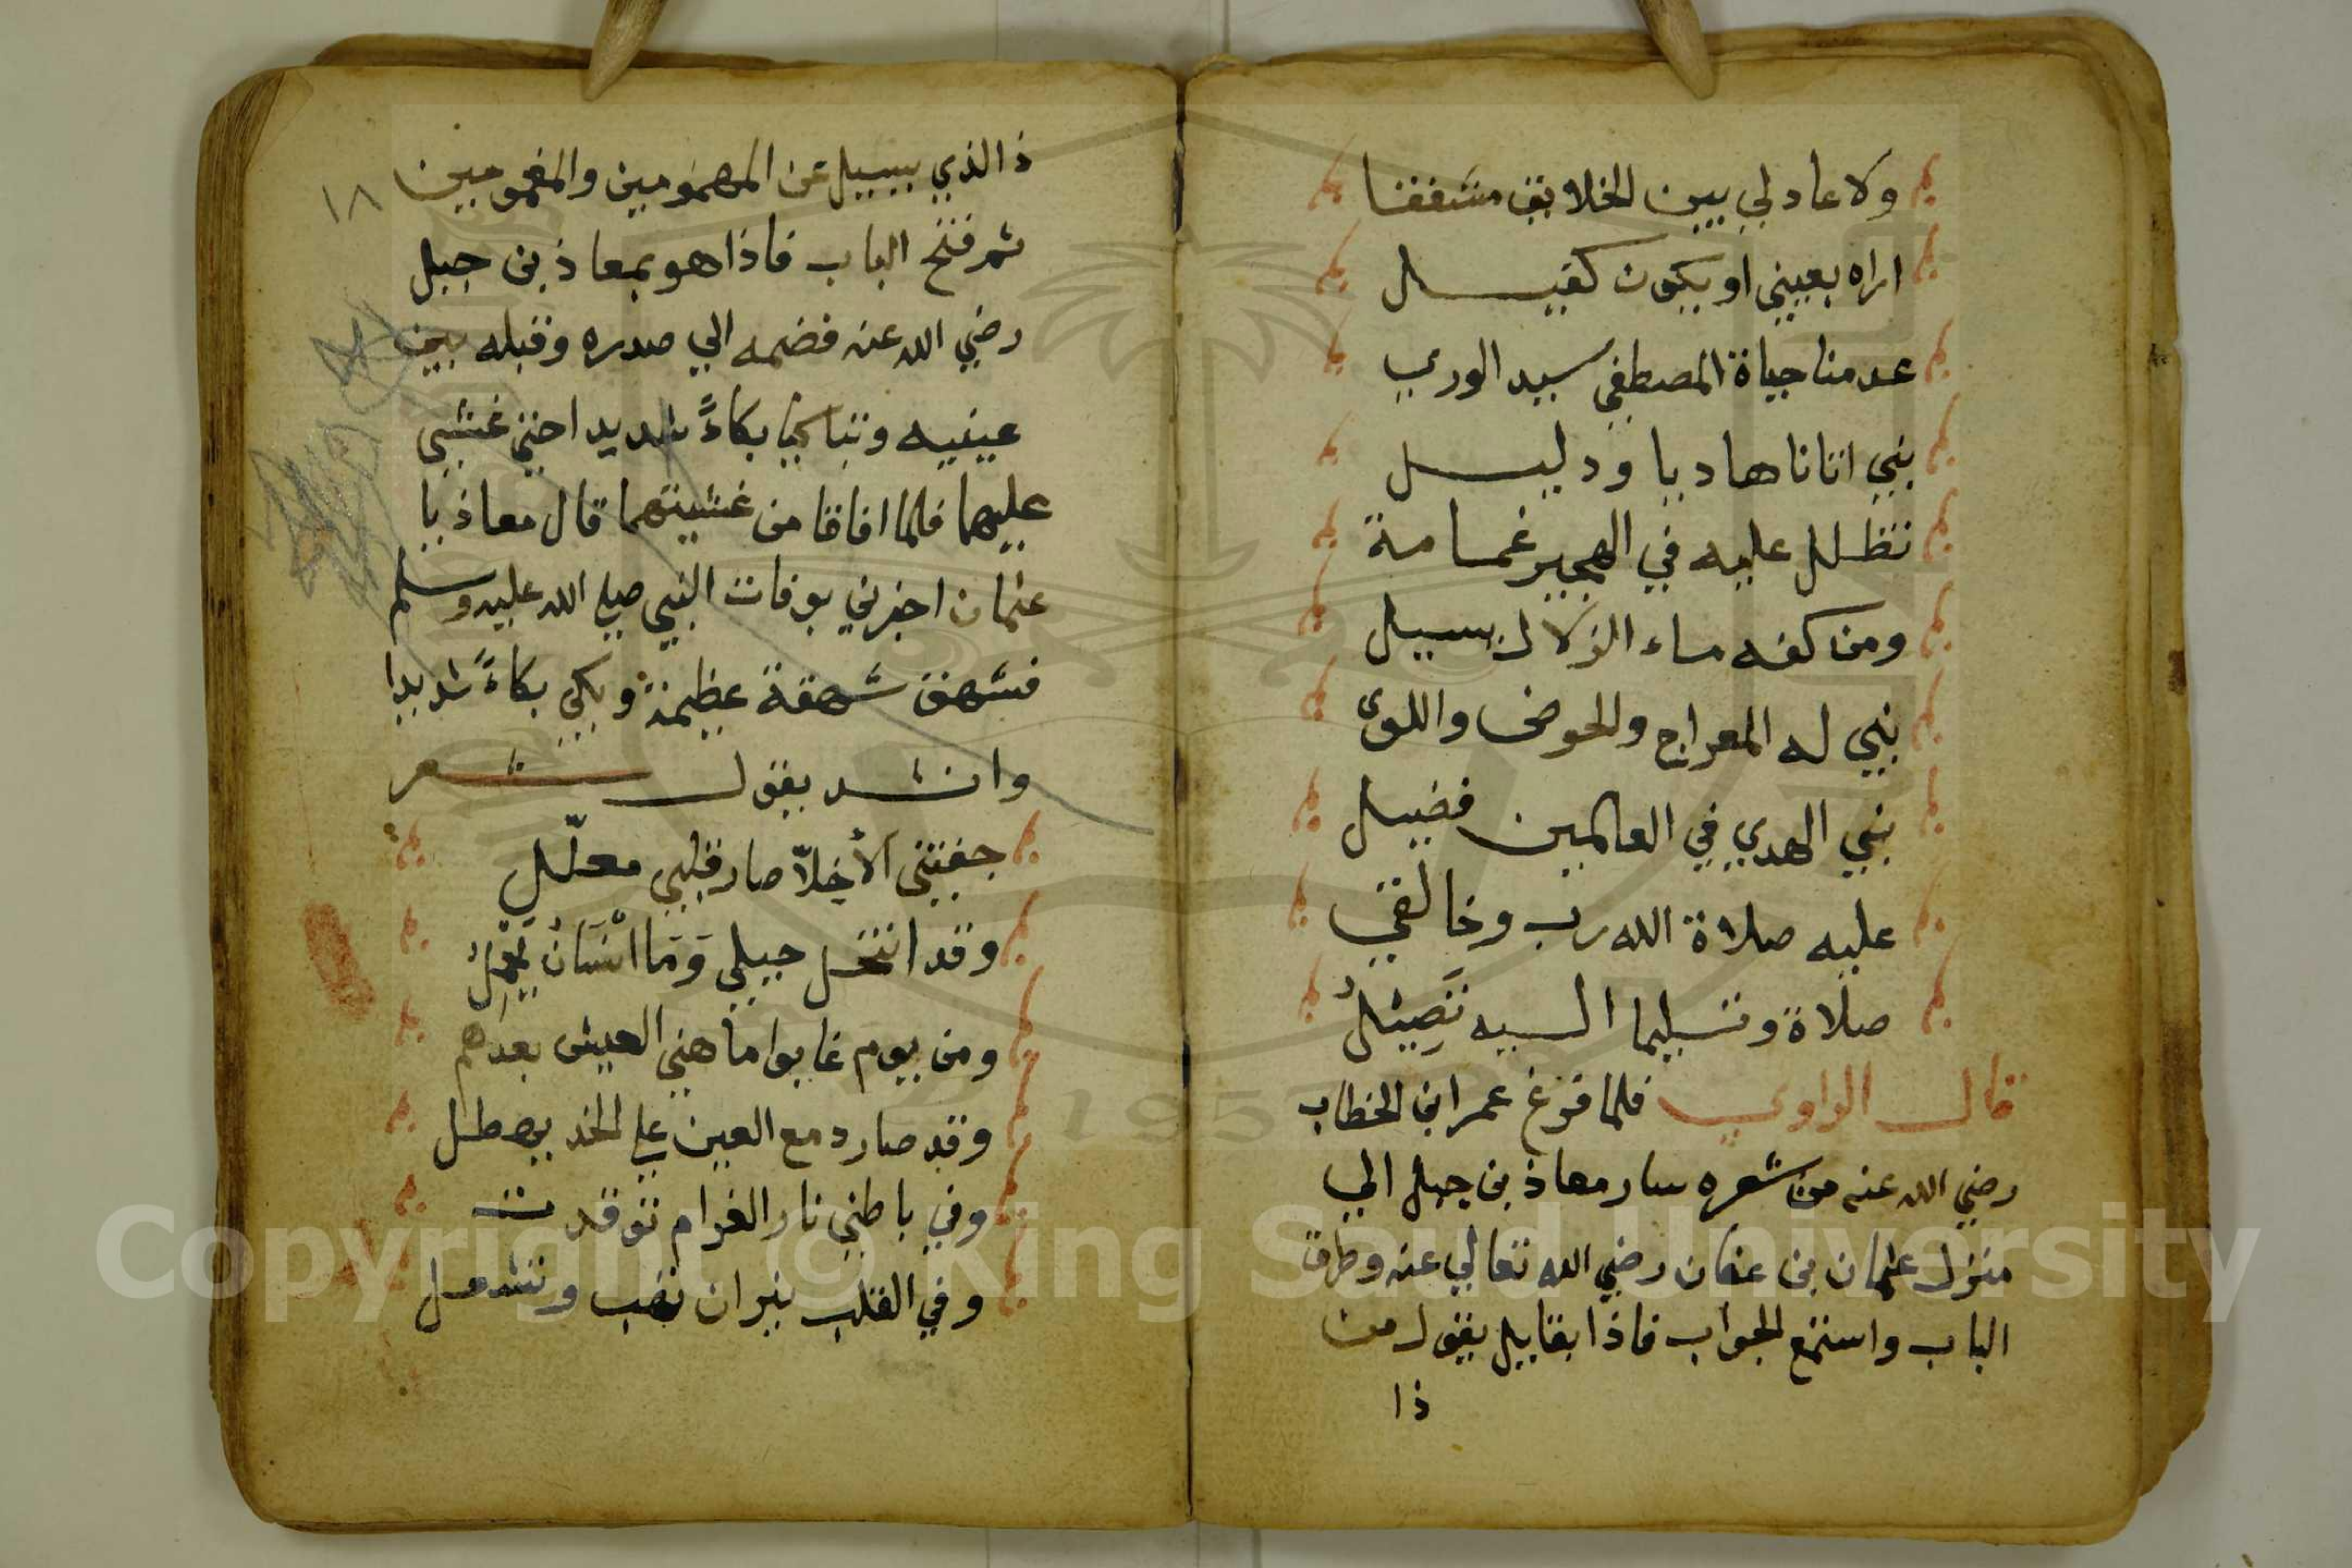 ولا عاد لي بين الخلايق مشفقا
اراه بعيني او يكون كفيل
عدمنا حياة المصطفي سيد الوري
نبي اتانا هاديا ودليل
تظلل عليه في الهجير غمامة
ومن كفه ماء الزلال يسيل
نبي له المعراج والحوض واللوى
نبي الهدي في العالمين فضيل
عليه صلاة الله رب وخالقي
صلاة وتسليما اليه
قال الراوي فلما فرغ عمر ابن الخطاب
رضي الله عنه من شعره سار معاذ بن جبل الي
منزل عثمان بن عفان رضي الله تعالي عنه وطرق
الباب واستمع الجواب فاذا بقايل يقول من
ذا
١٨
ذا الذي يسيل عن المهمومين والمغمومين
ثم فتح الباب فاذا هو بمعاذ بن جبل
رضي الله عنه فضمه الي صدره وقبله بين
عينيه وتباكيا بكاءً شديد احتي غشي
عليهما فلما افاقا من غشيتهما قال معاذ يا
عثمان اخبرني بوفات النبي صلي الله عليه وسلم
فشهق شهقة عظيمة وبكي بكاءً شديدا
وانشد يقول شعر
جفتني الأخلاّ صار قلبي معلّل
وقد انتحل حيلي وَمَا
ومن يوم غابوا ما هني العيش بعدهم
وقد صار دمع العين علي الخد يهطل
وفي باطني نار الغرام توقدت
وفي القلب نيران تهب وتشعل
Copyright © King Saud University
195